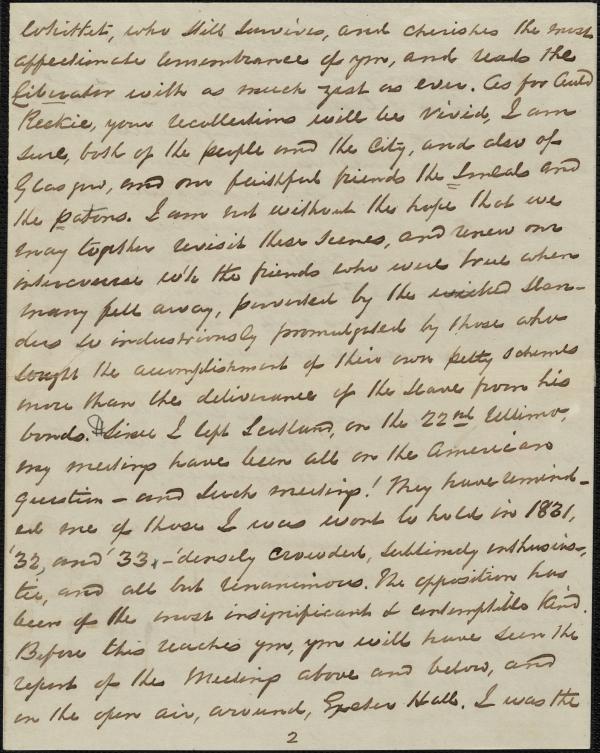 Whittet, who still survives, and cherishes the most
affectionate remembrance of you, and reads the
Liberator with as much zest as ever. As for Auld
Reekie, your recollections will be vivid, I am
sure, both of the people and the City, and also of
Glasgow, and our faithful friends the Smeals and
the patons. I am not without the hope that we
may together revisit these scenes, and renew our
intercourse with the friends who were true when
many fell away, perverted by the wicked slan-
ders so industriously promulgated by those who
sought the accomplishment of their own petty schemes
more than the deliverance of the slave from his
bonds. Since I left Scotland, on the 22nd Ultimo,
my meetings have been all on the American
question – and such meetings! They have remind-
ed me of those I was wont to hold in 1831,
'32, and '33, – densely crowded, sublimely enthusias-
tic, and all but unanimous. The opposition has
been of the most insignificant & contemptible kind.
Before this reaches you, you will have seen the
report of the Meetings above and below, and
in the open air, around, Exeter Hall. I was the
2